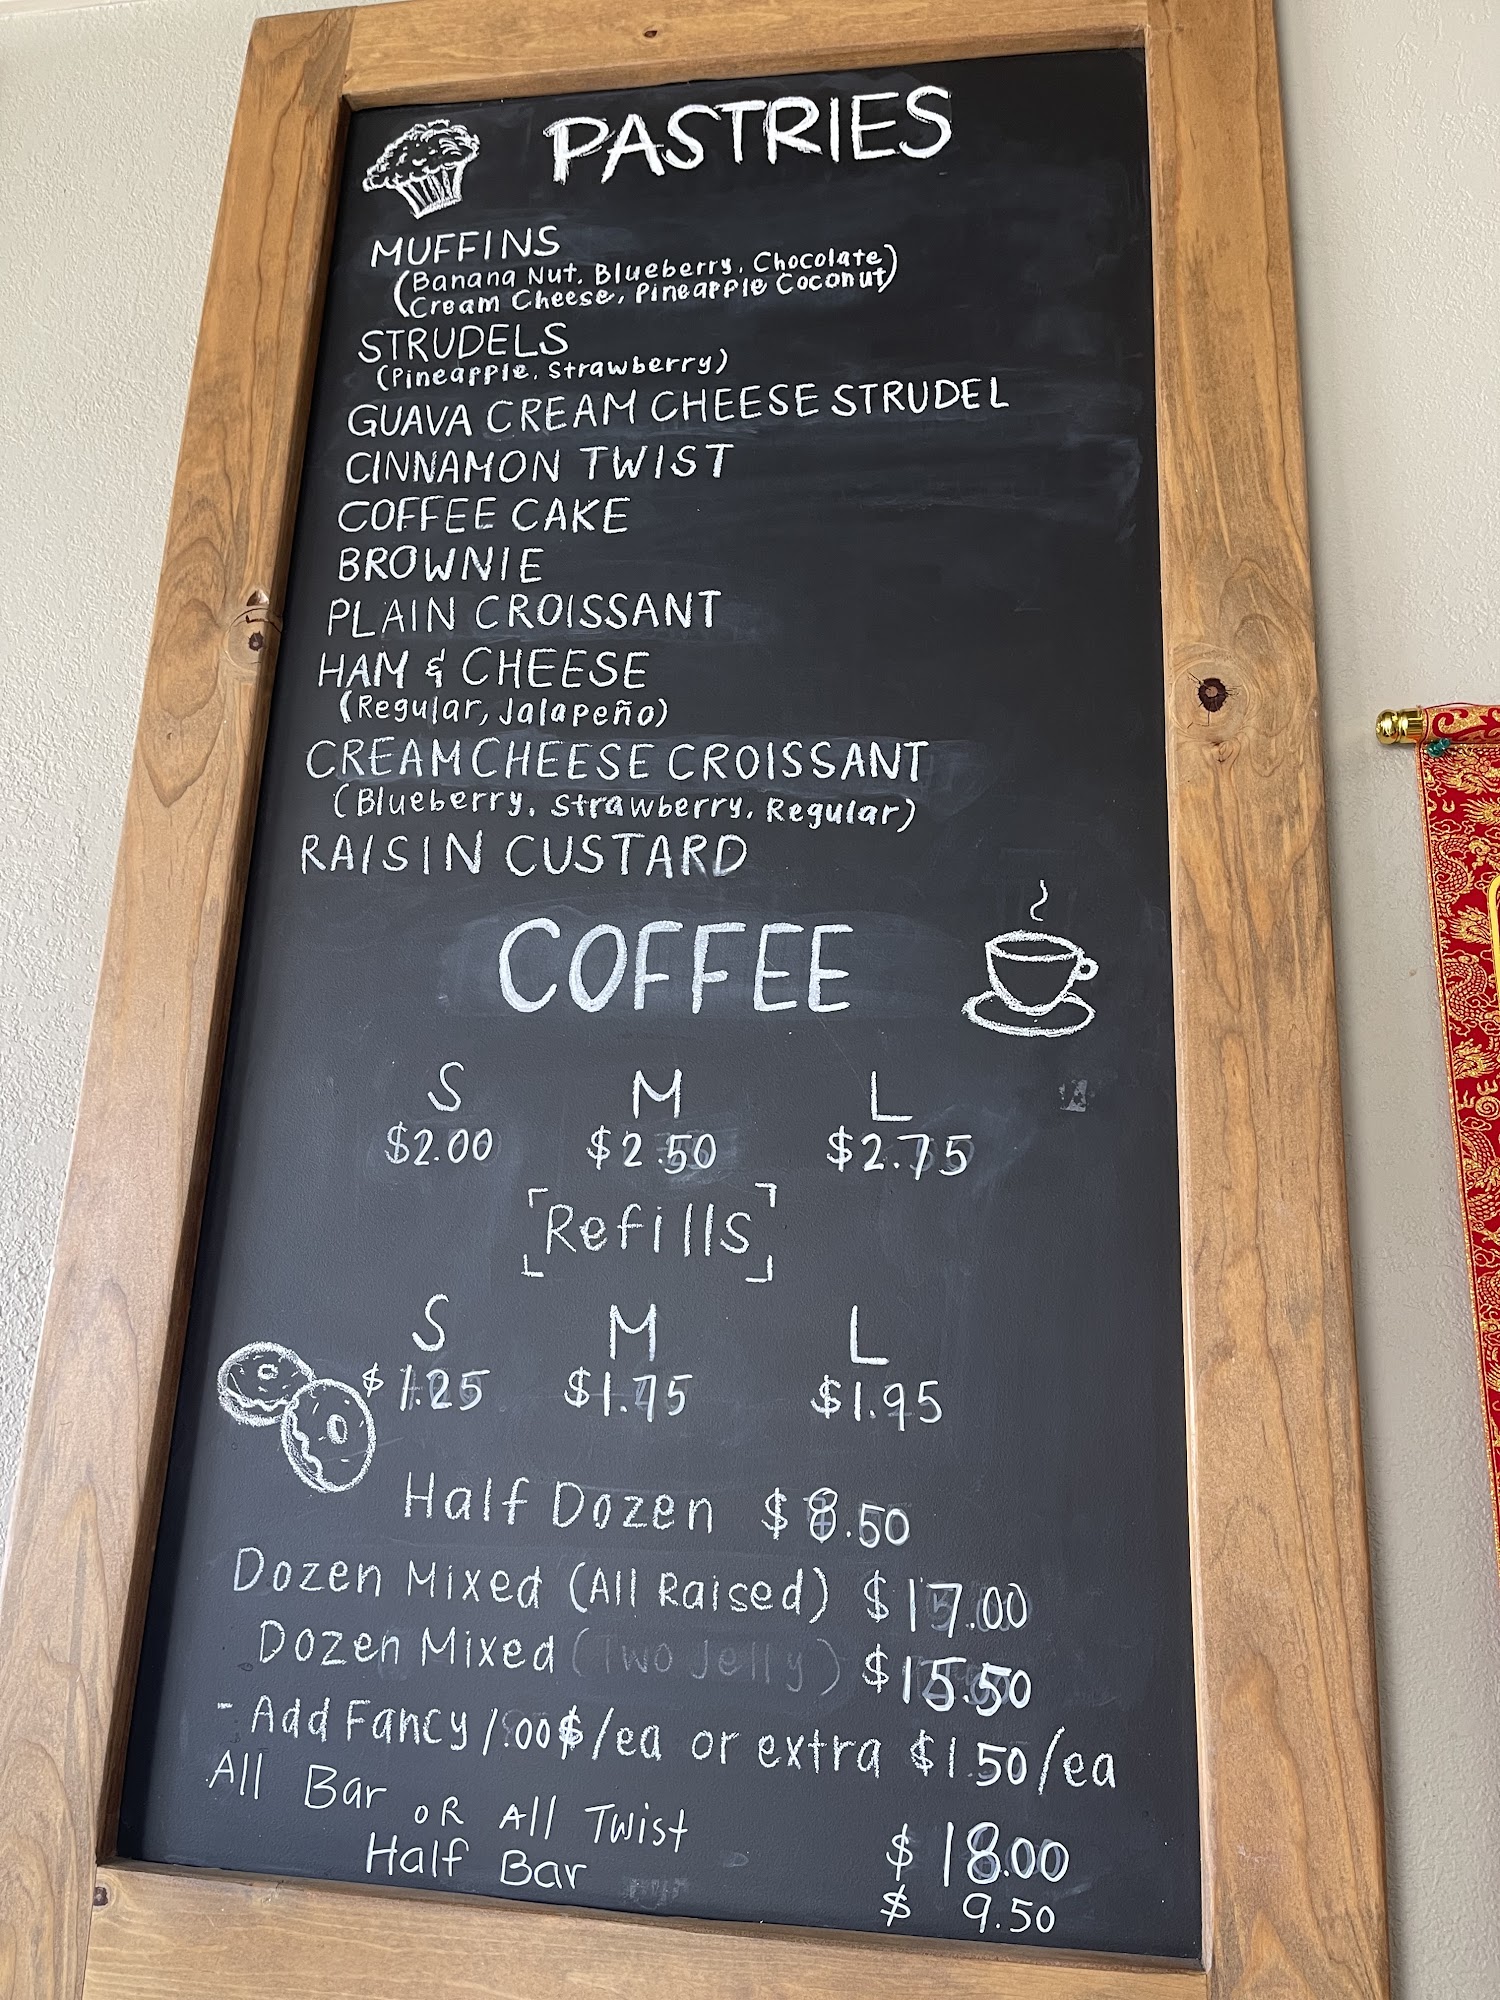 PASTRIES
MUFFINS
(Banana Nut, Blueberry, Chocolate
Cream Cheese, Pineapple Coconut)
STRUDELS
(Pineapple, Strawberry)
GUAVA CREAM CHEESE STRUDEL
CINNAMON TWIST
COFFEE CAKE
BROWNIE
PLAIN CROISSANT
HAM & CHEESE
(Regular, Jalapeño)
CREAM CHEESE CROISSANT
(Blueberry, Strawberry, Regular)
RAISIN CUSTARD
COFFEE
S M L
$2.00 $2.50 $2.75
[Refills]
S M L
$1.25 $1.75 $1.95
Half Dozen $8.50
Dozen Mixed (All Raised) $17.00
Dozen Mixed (Two Jelly) $15.50
- Add Fancy 1.00$/ea or extra $1.50/ea
All Bar OR All Twist $18.00
Half Bar $9.50